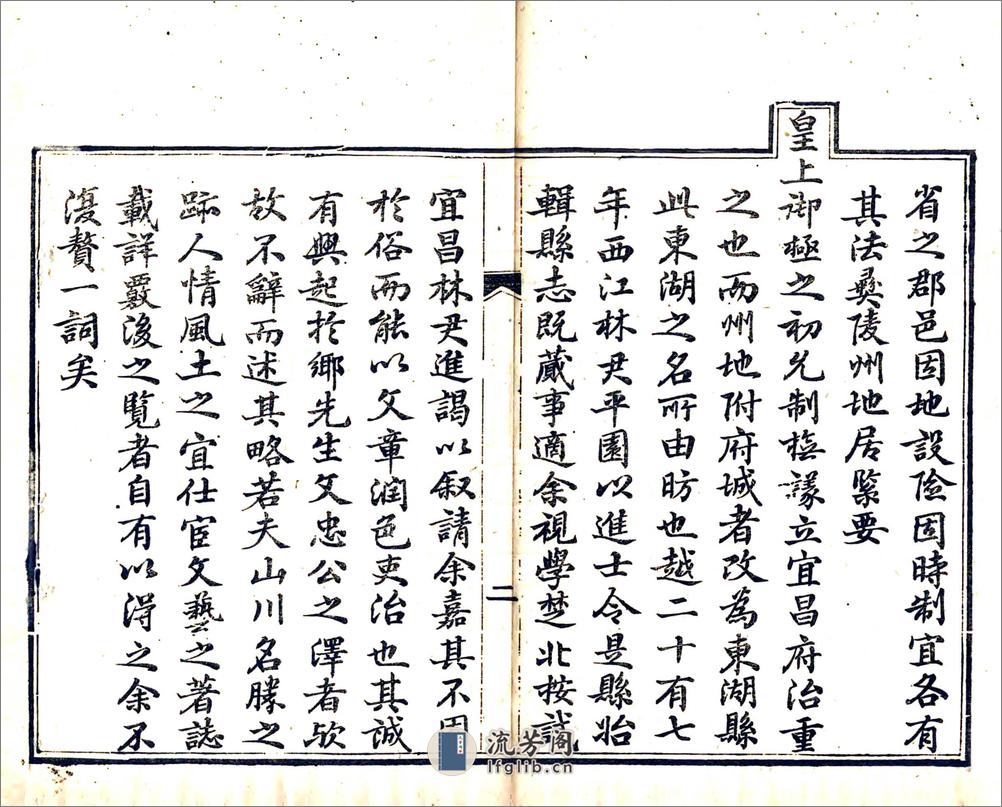 省之郡邑因地設險因時制宜各有
其法彝陵州地居緊要
皇上御極之初允制撫議立宜昌府治重
之也而州地附府城者改為東湖縣
此東湖之名所由昉也越二十有七
年西江林尹平園以進士令是縣始
輯縣志既蕆事適余視學楚北按試
二
宜昌林尹進謁以叙請余嘉其不囿
於俗而能以文章潤色吏治也其誠
有興起於鄉先生文忠公之澤者歟
故不辭而述其略若夫山川名勝之
跡人情風土之宜仕宦文藝之著誌
載詳覈後之覽者自有以得之余不
復贅一詞矣
流芳閣
lfglib.cn